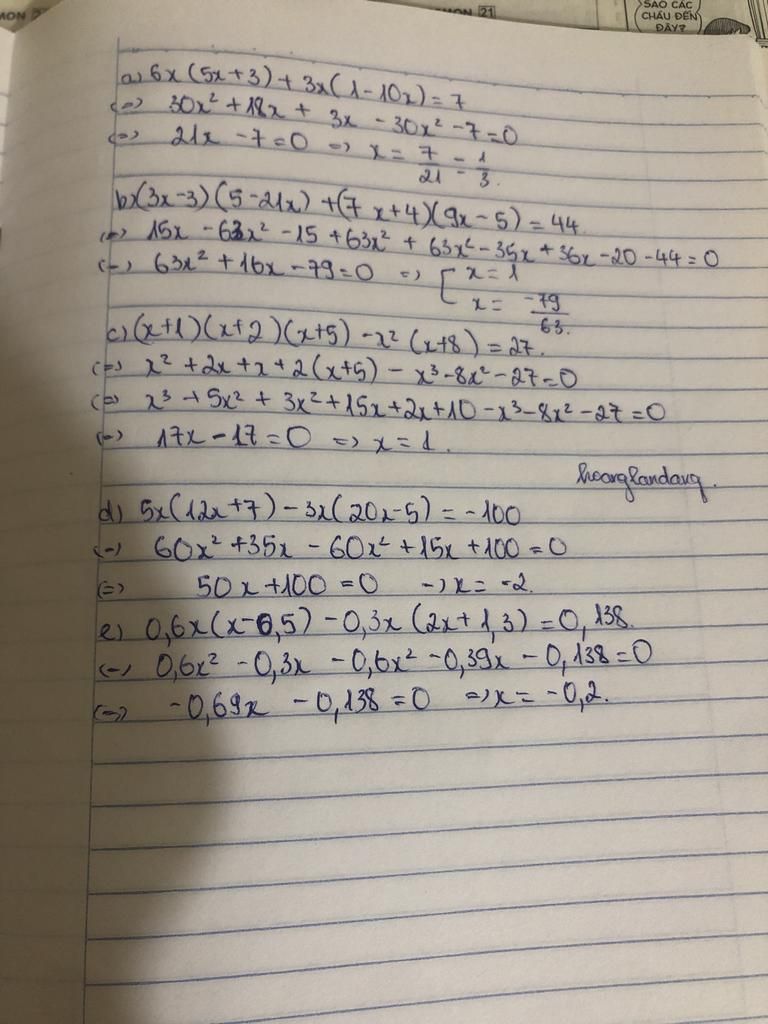 MON 21
SAO CÁC
CHÁU ĐẾN
ĐÂY?
a) 6x(5x+3) + 3x(1-10x) = 7
(=) 30x² + 18x + 3x - 30x² - 7 = 0
(=) 21x - 7 = 0 => x = 7/21 = 1/3.
b) (3x-3)(5-21x) + (7x+4)(9x-5) = 44
(=) 15x - 63x² - 15 + 63x² + 63x² - 35x + 36x - 20 - 44 = 0
(=) 63x² + 16x - 79 = 0 => [ x = 1
x = -79/63.
c) (x+1)(x+2)(x+5) - x²(x+8) = 27.
(=) x² + 2x + x + 2(x+5) - x³ - 8x² - 27 = 0
(=) x³ + 5x² + 3x² + 15x + 2x + 10 - x³ - 8x² - 27 = 0
(=) 17x - 17 = 0 => x = 1.
hoanglandang.
d) 5x(12x+7) - 3x(20x-5) = -100
(=) 60x² + 35x - 60x² + 15x + 100 = 0
(=) 50x + 100 = 0 -> x = -2.
e) 0,6x(x-0,5) - 0,3x(2x+1,3) = 0,138.
(=) 0,6x² - 0,3x - 0,6x² - 0,39x - 0,138 = 0
(=) -0,69x - 0,138 = 0 => x = -0,2.